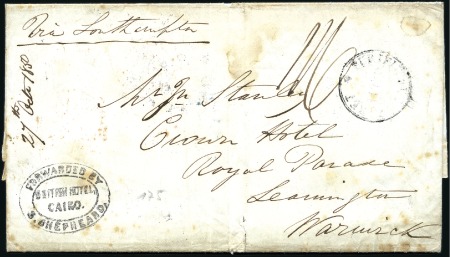 Via Southampton
27th Octr 1850
Mr Jn Stanley
Crown Hotel
Royal Parade
Leamington
Warwick
FORWARDED BY
BRITISH HOTEL,
CAIRO.
S. SHEPHEARD.
175